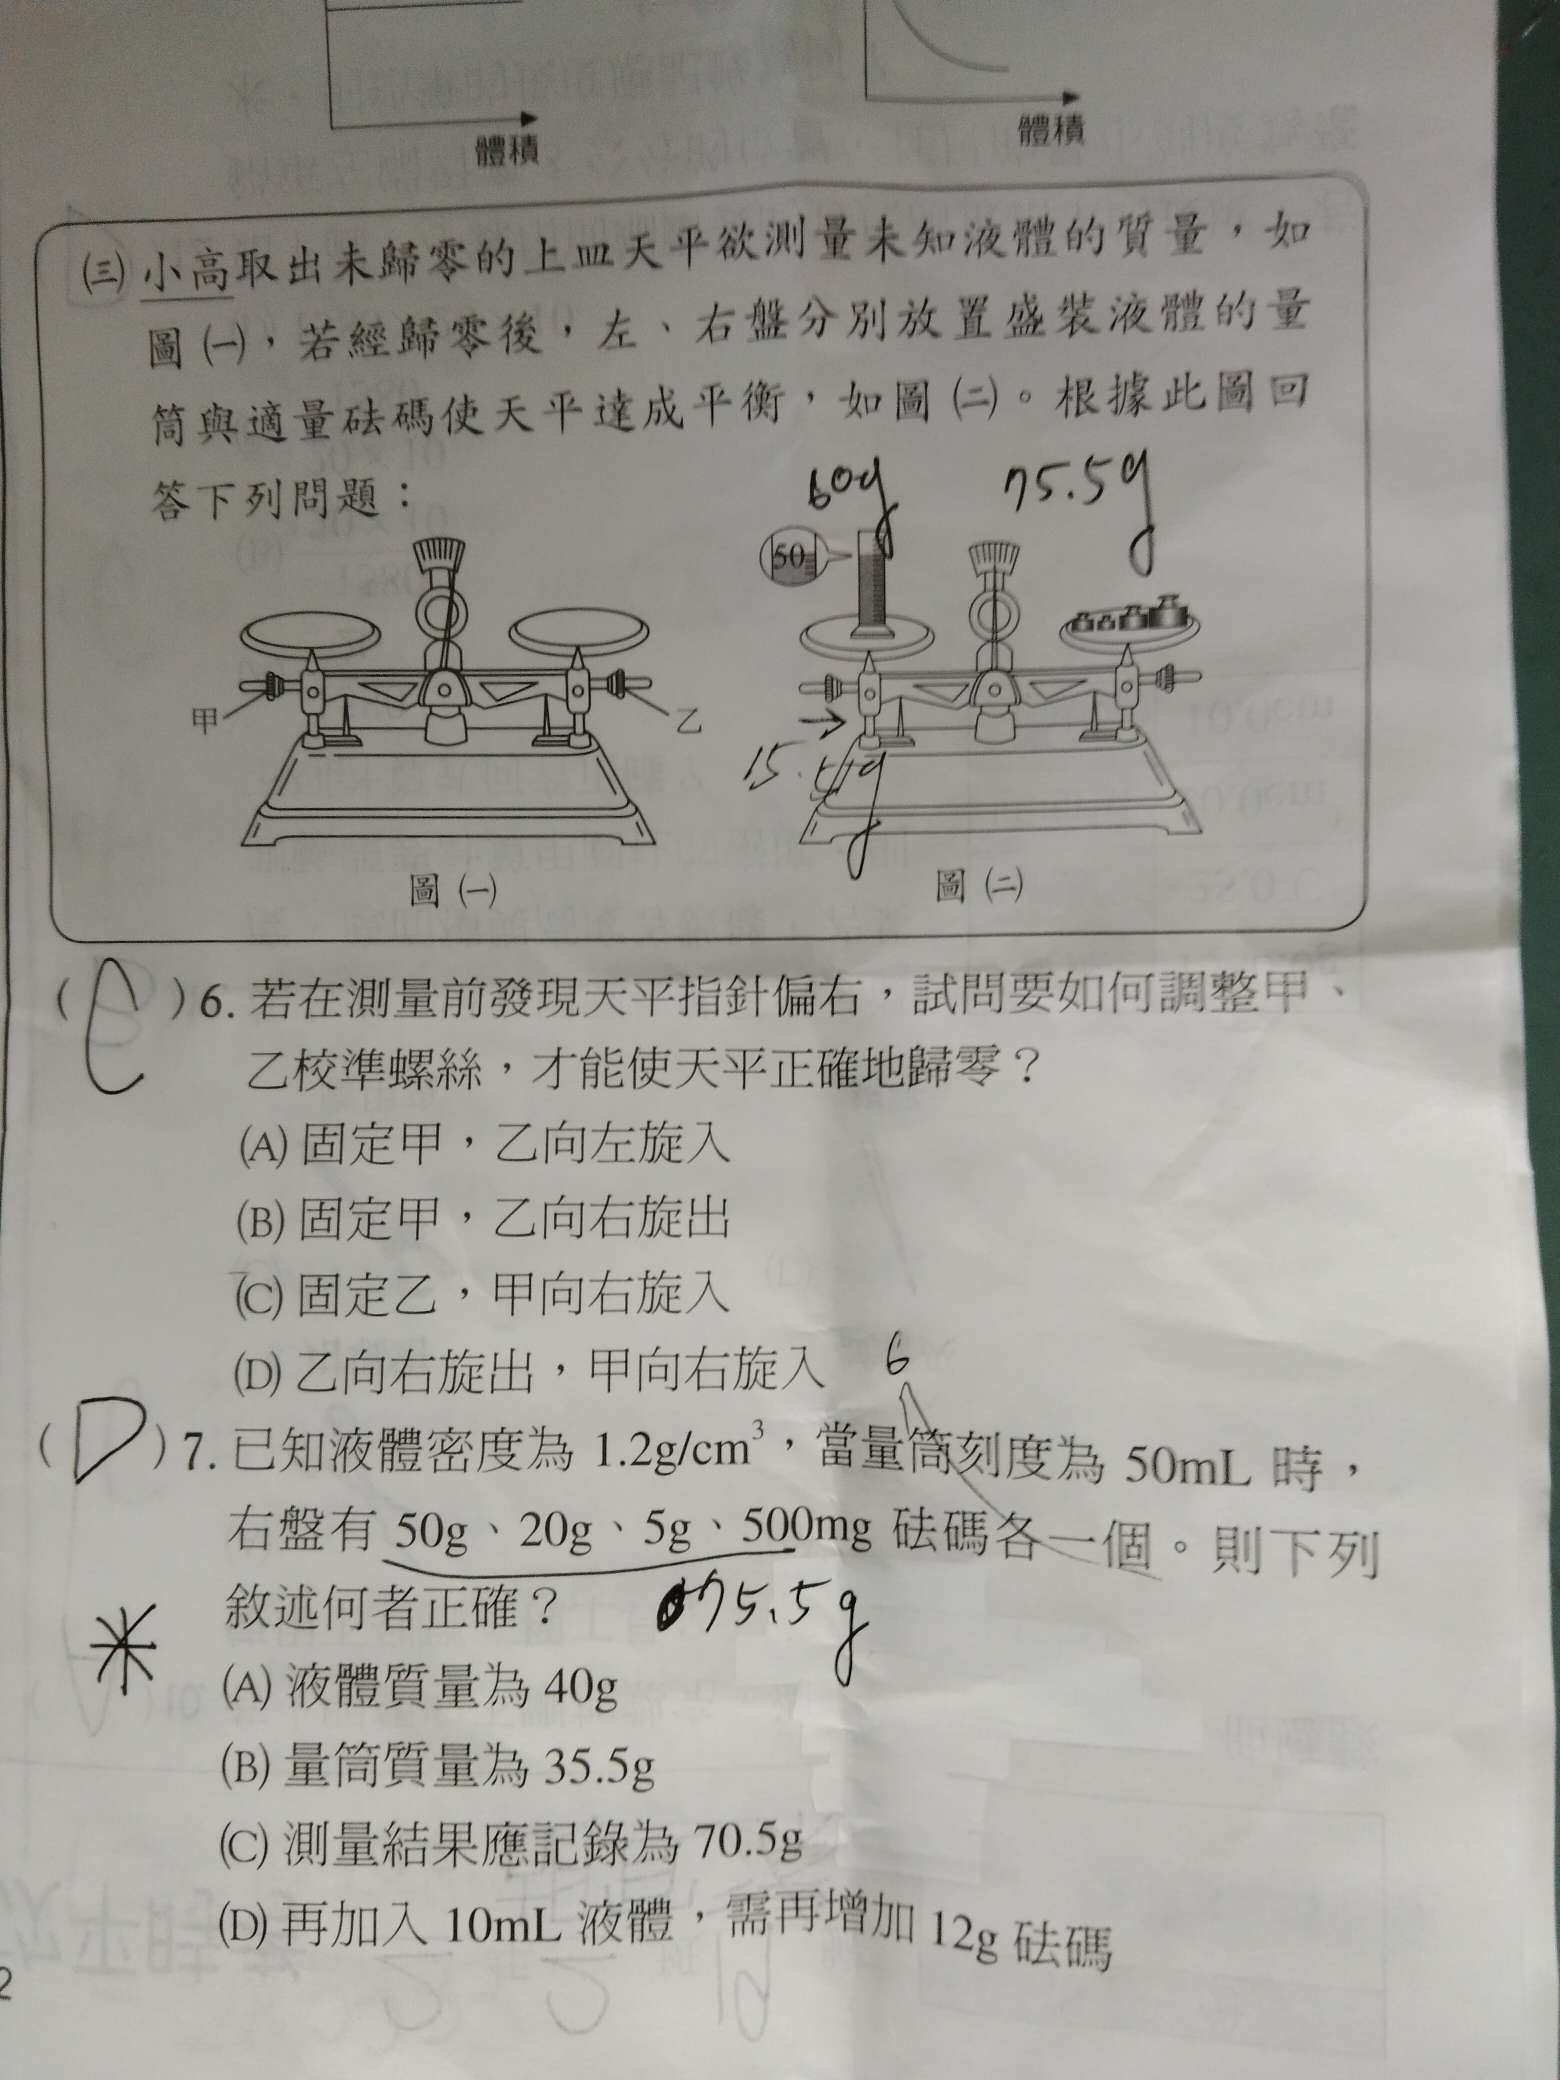 體積
體積
㈢ 小高取出未歸零的上皿天平欲測量未知液體的質量，如
圖㈠，若經歸零後，左、右盤分別放置盛裝液體的量
筒與適量砝碼使天平達成平衡，如圖㈡。根據此圖回
答下列問題：
60g
75.5g
50
甲
乙
15.5g
圖㈠
圖㈡
( C ) 6. 若在測量前發現天平指針偏右，試問要如何調整甲、
乙校準螺絲，才能使天平正確地歸零？
(A) 固定甲，乙向左旋入
(B) 固定甲，乙向右旋出
(C) 固定乙，甲向右旋入
(D) 乙向右旋出，甲向右旋入
6
( D ) 7. 已知液體密度為 1.2g/cm³，當量筒刻度為 50mL 時，
右盤有 50g、20g、5g、500mg 砝碼各一個。則下列
敘述何者正確？
75.5g
(A) 液體質量為 40g
(B) 量筒質量為 35.5g
(C) 測量結果應記錄為 70.5g
(D) 再加入 10mL 液體，需再增加 12g 砝碼
2